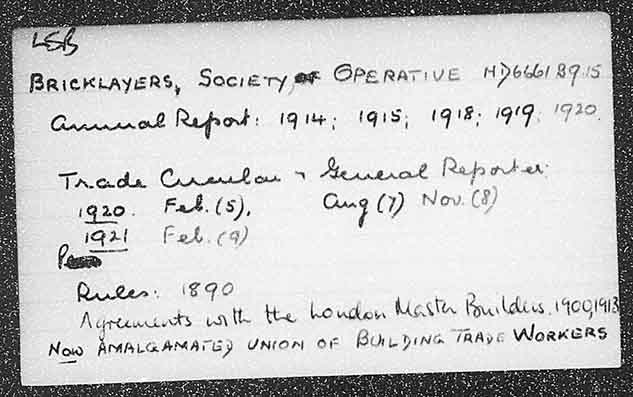 LSB
BRICKLAYERS, SOCIETY, OF OPERATIVE HD6661 B9.15
Annual Report: 1914; 1915; 1918; 1919; 1920.
Trade Circular & General Reporter:
1920. Feb. (5), Aug (7) Nov. (8)
1921 Feb. (9)
Rules: 1890
Agreements with the London Master Builders. 1900, 1913
NOW AMALGAMATED UNION OF BUILDING TRADE WORKERS